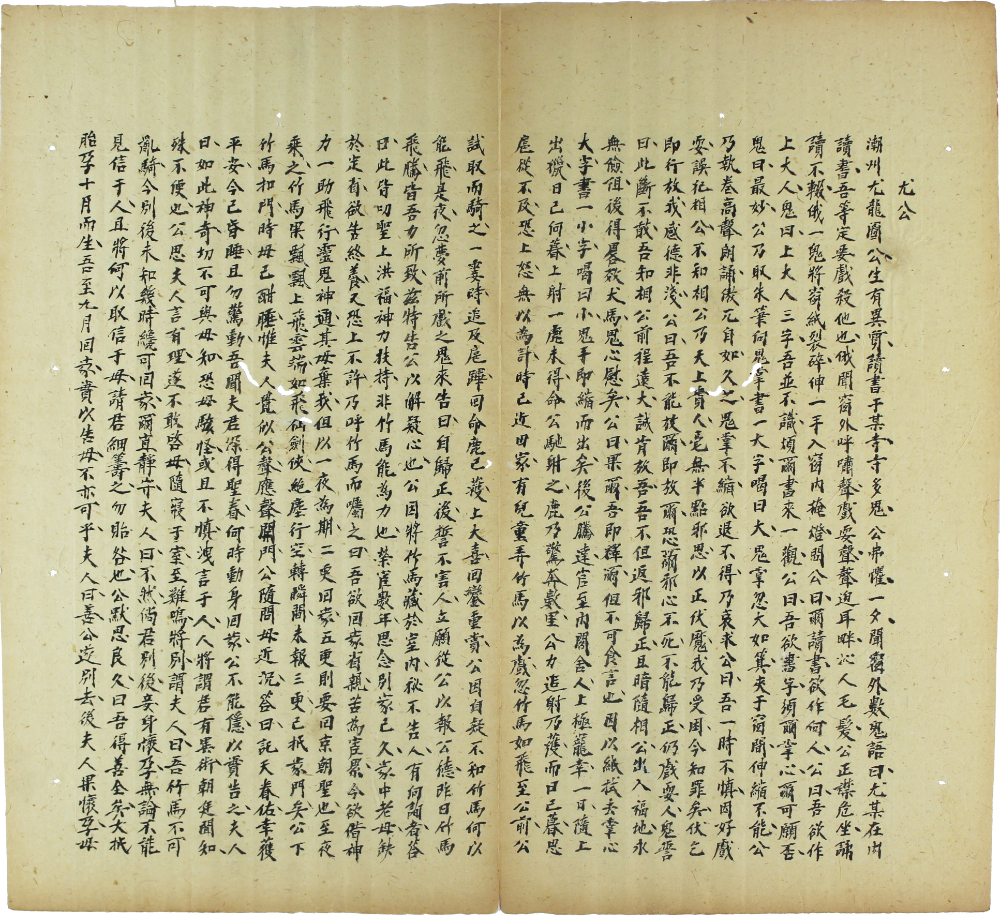 尤公
潮州尤龍圖公生有異質讀書于某寺寺多鬼公弗懼一夕聞窗外數鬼語曰尤某在內
讀書吾等定要戲殺他也俄聞窗外呼嘯聲戲耍聲聲迫耳畔沁人毛髮公正襟危坐誦
讀不輟俄一鬼將窗紙裂碎伸一手入窗內掩燈問公曰爾讀書欲作何人公曰吾欲作
上大人鬼曰上大人三字吾並不識煩爾書來一觀公曰吾欲書字須爾掌心爾可願否
鬼曰最妙公乃取朱筆向鬼掌書一大字喝曰大鬼掌忽大如箕夾于窗間伸縮不能公
乃執卷高聲朗誦傲兀自如久之鬼掌不縮欲退不得乃哀求公曰吾一時不慎因好戲
耍誤犯相公不知相公乃天上貴人邑無半點邪思以正伏魔我乃受困今知罪矣伏乞
即行放我感德非淺公曰吾不能放爾即放爾恐爾邪心不死不能歸正仍戲耍人鬼誓
曰此斷不敢吾知相公前程遠大誠肯放吾吾不但返邪歸正且暗隨相公出入福地永
無險阻後得畧效犬馬鬼心慰矣公曰果爾吾即釋爾但不可食言也因以紙拭去掌心
大字書一小字喝曰小鬼手即縮而出矣後公騰達官至內閣舍人上極寵幸一日隨上
出獵日已向暮上射一鹿未得命公馳射之鹿乃驚奔數里公力追射乃獲而日已暮思
扈從不及恐上怒無以為計時已近田家有兒童弄竹馬以為戲忽竹馬如飛至公前公
試取而騎之一霎時追及扈蹕回命鹿已獲上大喜回鑾重賞公因自疑不和竹馬何以
能飛是夜忽夢前所戲之鬼來告曰自歸正後誓不害人立願從公以報公德昨日竹馬
飛騰皆吾力所致茲特告公以解疑心也公因將竹馬藏於室內秘不告人有問詢者答
曰此皆叨聖上洪福神力扶持非竹馬能為力也榮宦數年思念別家已久家中老母缺
於定省欲告終養又恐上不許乃呼竹馬而囑之曰吾欲回家省親苦為宦累今欲借神
力一助飛行靈鬼神通其毋棄我但以一夜為期二更回家五更則要回京朝聖也至夜
乘之竹馬果飄飄上飛雲端如飛仙劍俠絕塵行空轉瞬間未報三更已抵家門矣公下
竹馬扣門時母已酣睡惟夫人覺似公聲應聲開門公隨問母近況答曰託天眷佑幸獲
平安今已昏睡且勿驚動吾聞夫君深得聖眷何時動身回家公不能隱以實告之夫人
曰如此神奇切不可與母知恐母駭怪或且不慎洩言于人人將謂君有異術朝廷聞知
殊不便也公思夫人言有理遂不敢啓母隨寢于室至雞鳴將別謂夫人曰吾竹馬不可
亂騎今別後未知幾時纔可回家爾宜靜守夫人曰不然倘君別後妾身懷孕無論不能
見信于人且將何以取信于母請君細籌之勿貽咎也公默思良久曰吾得善全矣大抵
胎孕十月而生吾至九月回家實以告母不亦可乎夫人曰善公遂別去後夫人果懷孕母